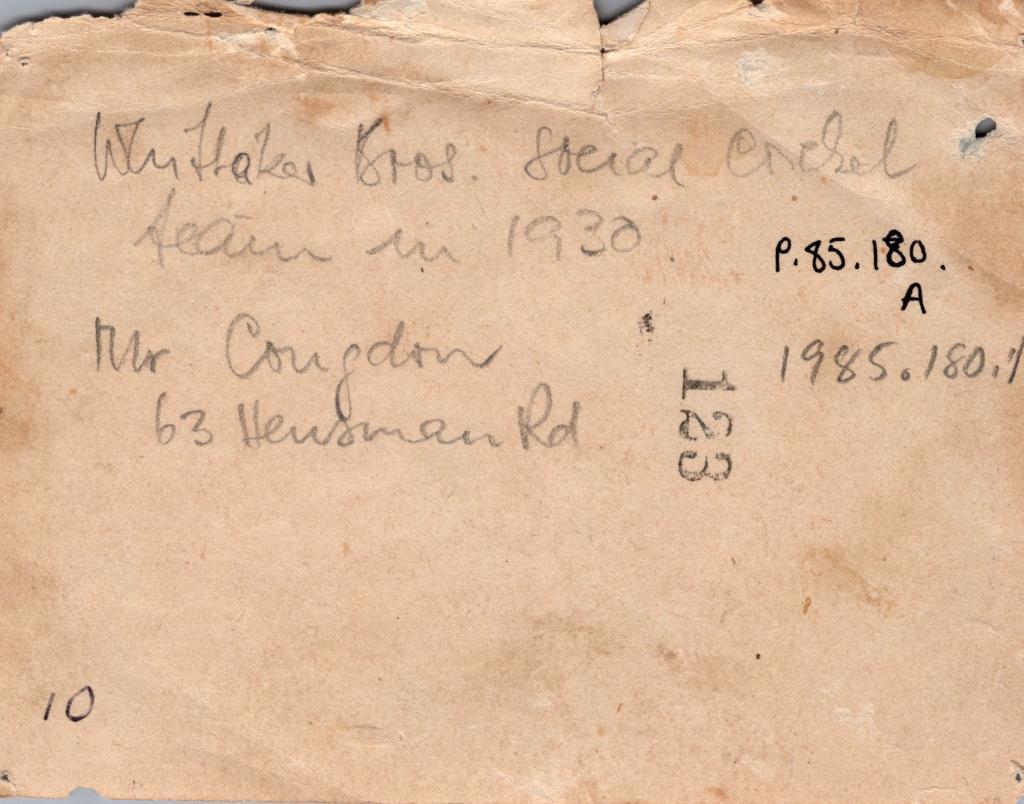 Whittaker Bros. Social Cricket
team in 1930.
P.85.180.
A
Mr Congdon
1985.180.1
63 Hensman Rd
123
10